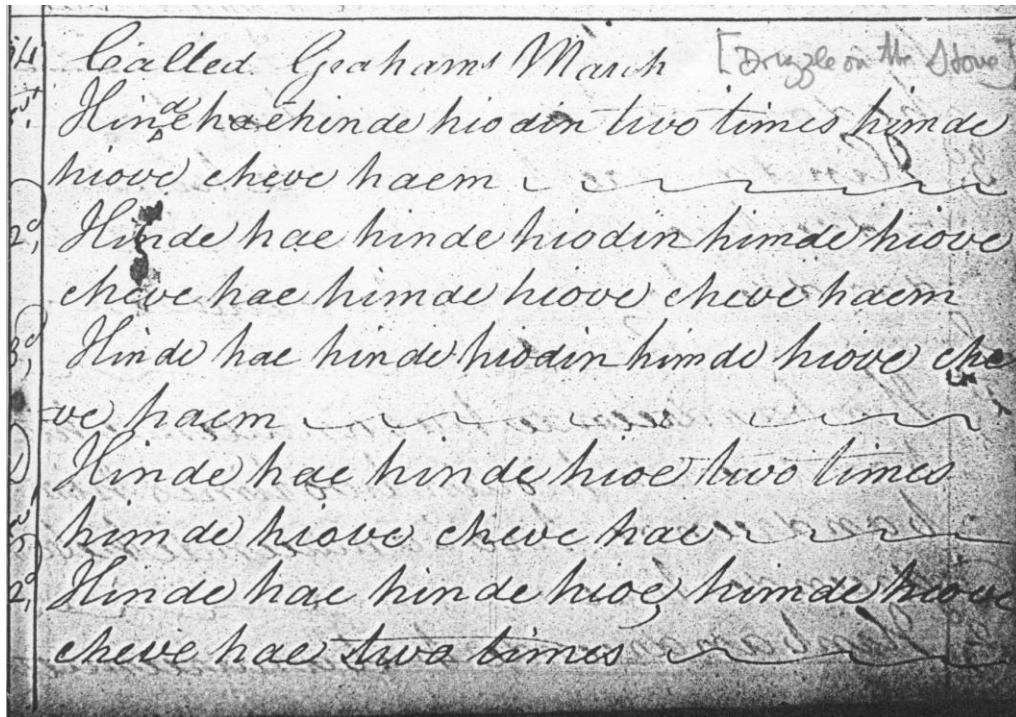 54 Called Grahams March [Drizzle on the Stone]
Hindehaehinde hiodin two times himde
hiove cheve haem
2d, Hinde hae hinde hiodin himde hiove
cheve hae himde hiove cheve haem
3d, Hinde hae hinde hiodin himde hiove che
ve haem
D, Hinde hae hinde hioe two times
himde hiove cheve hae
2d, Hinde hae hinde hioe, himde hiove
cheve hae two times